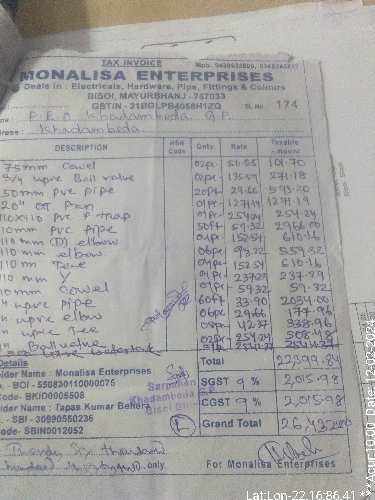 TAX INVOICE
Mob. 9439533809, 9348245813
MONALISA ENTERPRISES
Deals in : Electricals, Hardware, Pipe, Fittings & Colours
BISOI, MAYURBHANJ - 757033
GSTIN - 21BGLPB4058H1ZQ Sl. No. 174
P.E.O Khadambeda G.P.
Khadambeda
DESCRIPTION HSN Code Qnty. Rate Taxable
75mm Cowel 02pc 101.70
3/4 upvc Ball valve 02pc 135.59 271.18
50mm pvc pipe 20ft 29.66 593.20
20" OT Pan 01pc 1271.19 1271.19
110x110 pvc P trap 01pc 254.24 254.24
110mm pvc pipe 50ft 59.32 2966.00
110 mm (D) elbow 04pc 152.54 610.16
110 mm elbow 06pc 93.22 559.32
110 m Tee 04pc 152.54 610.16
110 mm Y 01pc 237.29 237.29
110mm Cowel 01pc 59.32 59.32
" upvc pipe 60ft 33.90 2034.00
" upvc elbow 06pc 29.66 177.96
" upvc Tee 08pc 42.37 338.96
" Ball valve 02pc 254.24 508.48
Details
older Name : Monalisa Enterprises Total 22399.84
- BOI - 550830110000075
Code- BKID0005508 SGST 9 % 2,015.98
Sarpanch
Khadambeda GP
Bisoi Block
older Name : Tapas Kumar Behera CGST 9 % 2,015.98
- SBI - 30990550236
Code- SBIN0012052 Grand Total
only. For Monalisa Enterprises
LatLon-22.16:86.41